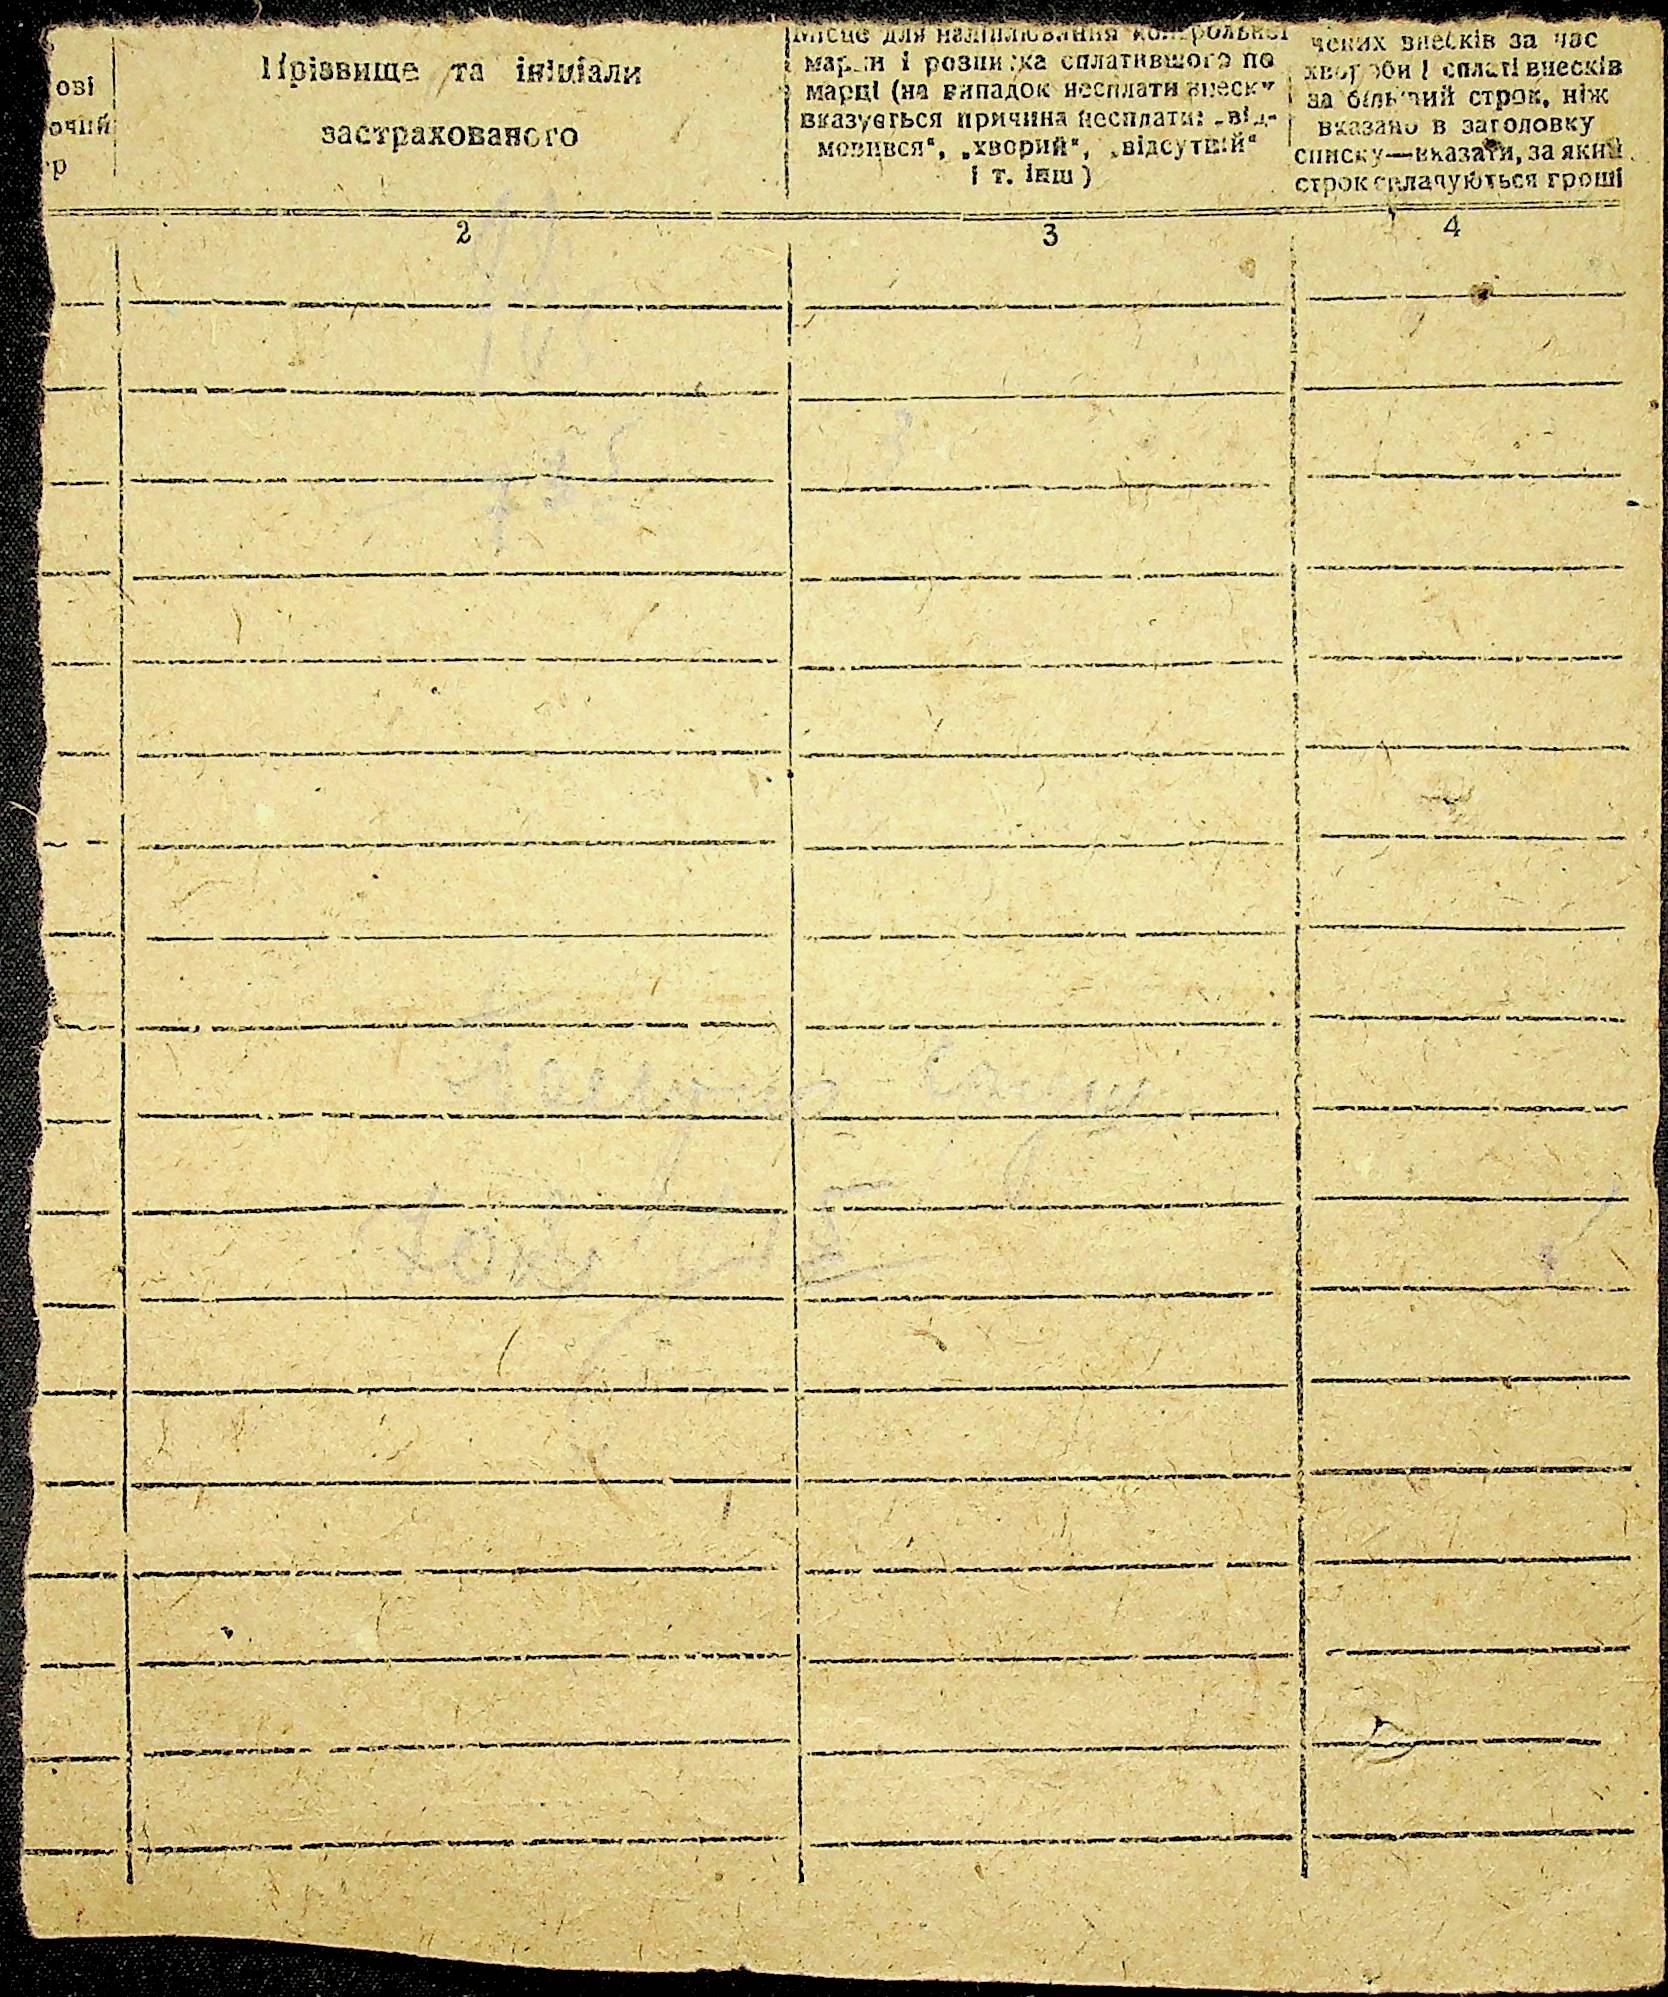 ові
очний
р
Прізвище та ініціали
застрахованого
Місце для наліплювання контрольної
марки і розписка сплатившого по
марці (на випадок несплати внеску
вказується причина несплати: „від-
мовився“, „хворий“, „відсутній“
і т. інш)
чених внесків за час
хвороби і сплаті внесків
за більший строк, ніж
вказано в заголовку
списку—вказати, за який
строк сплачуються гроші
2
3
4